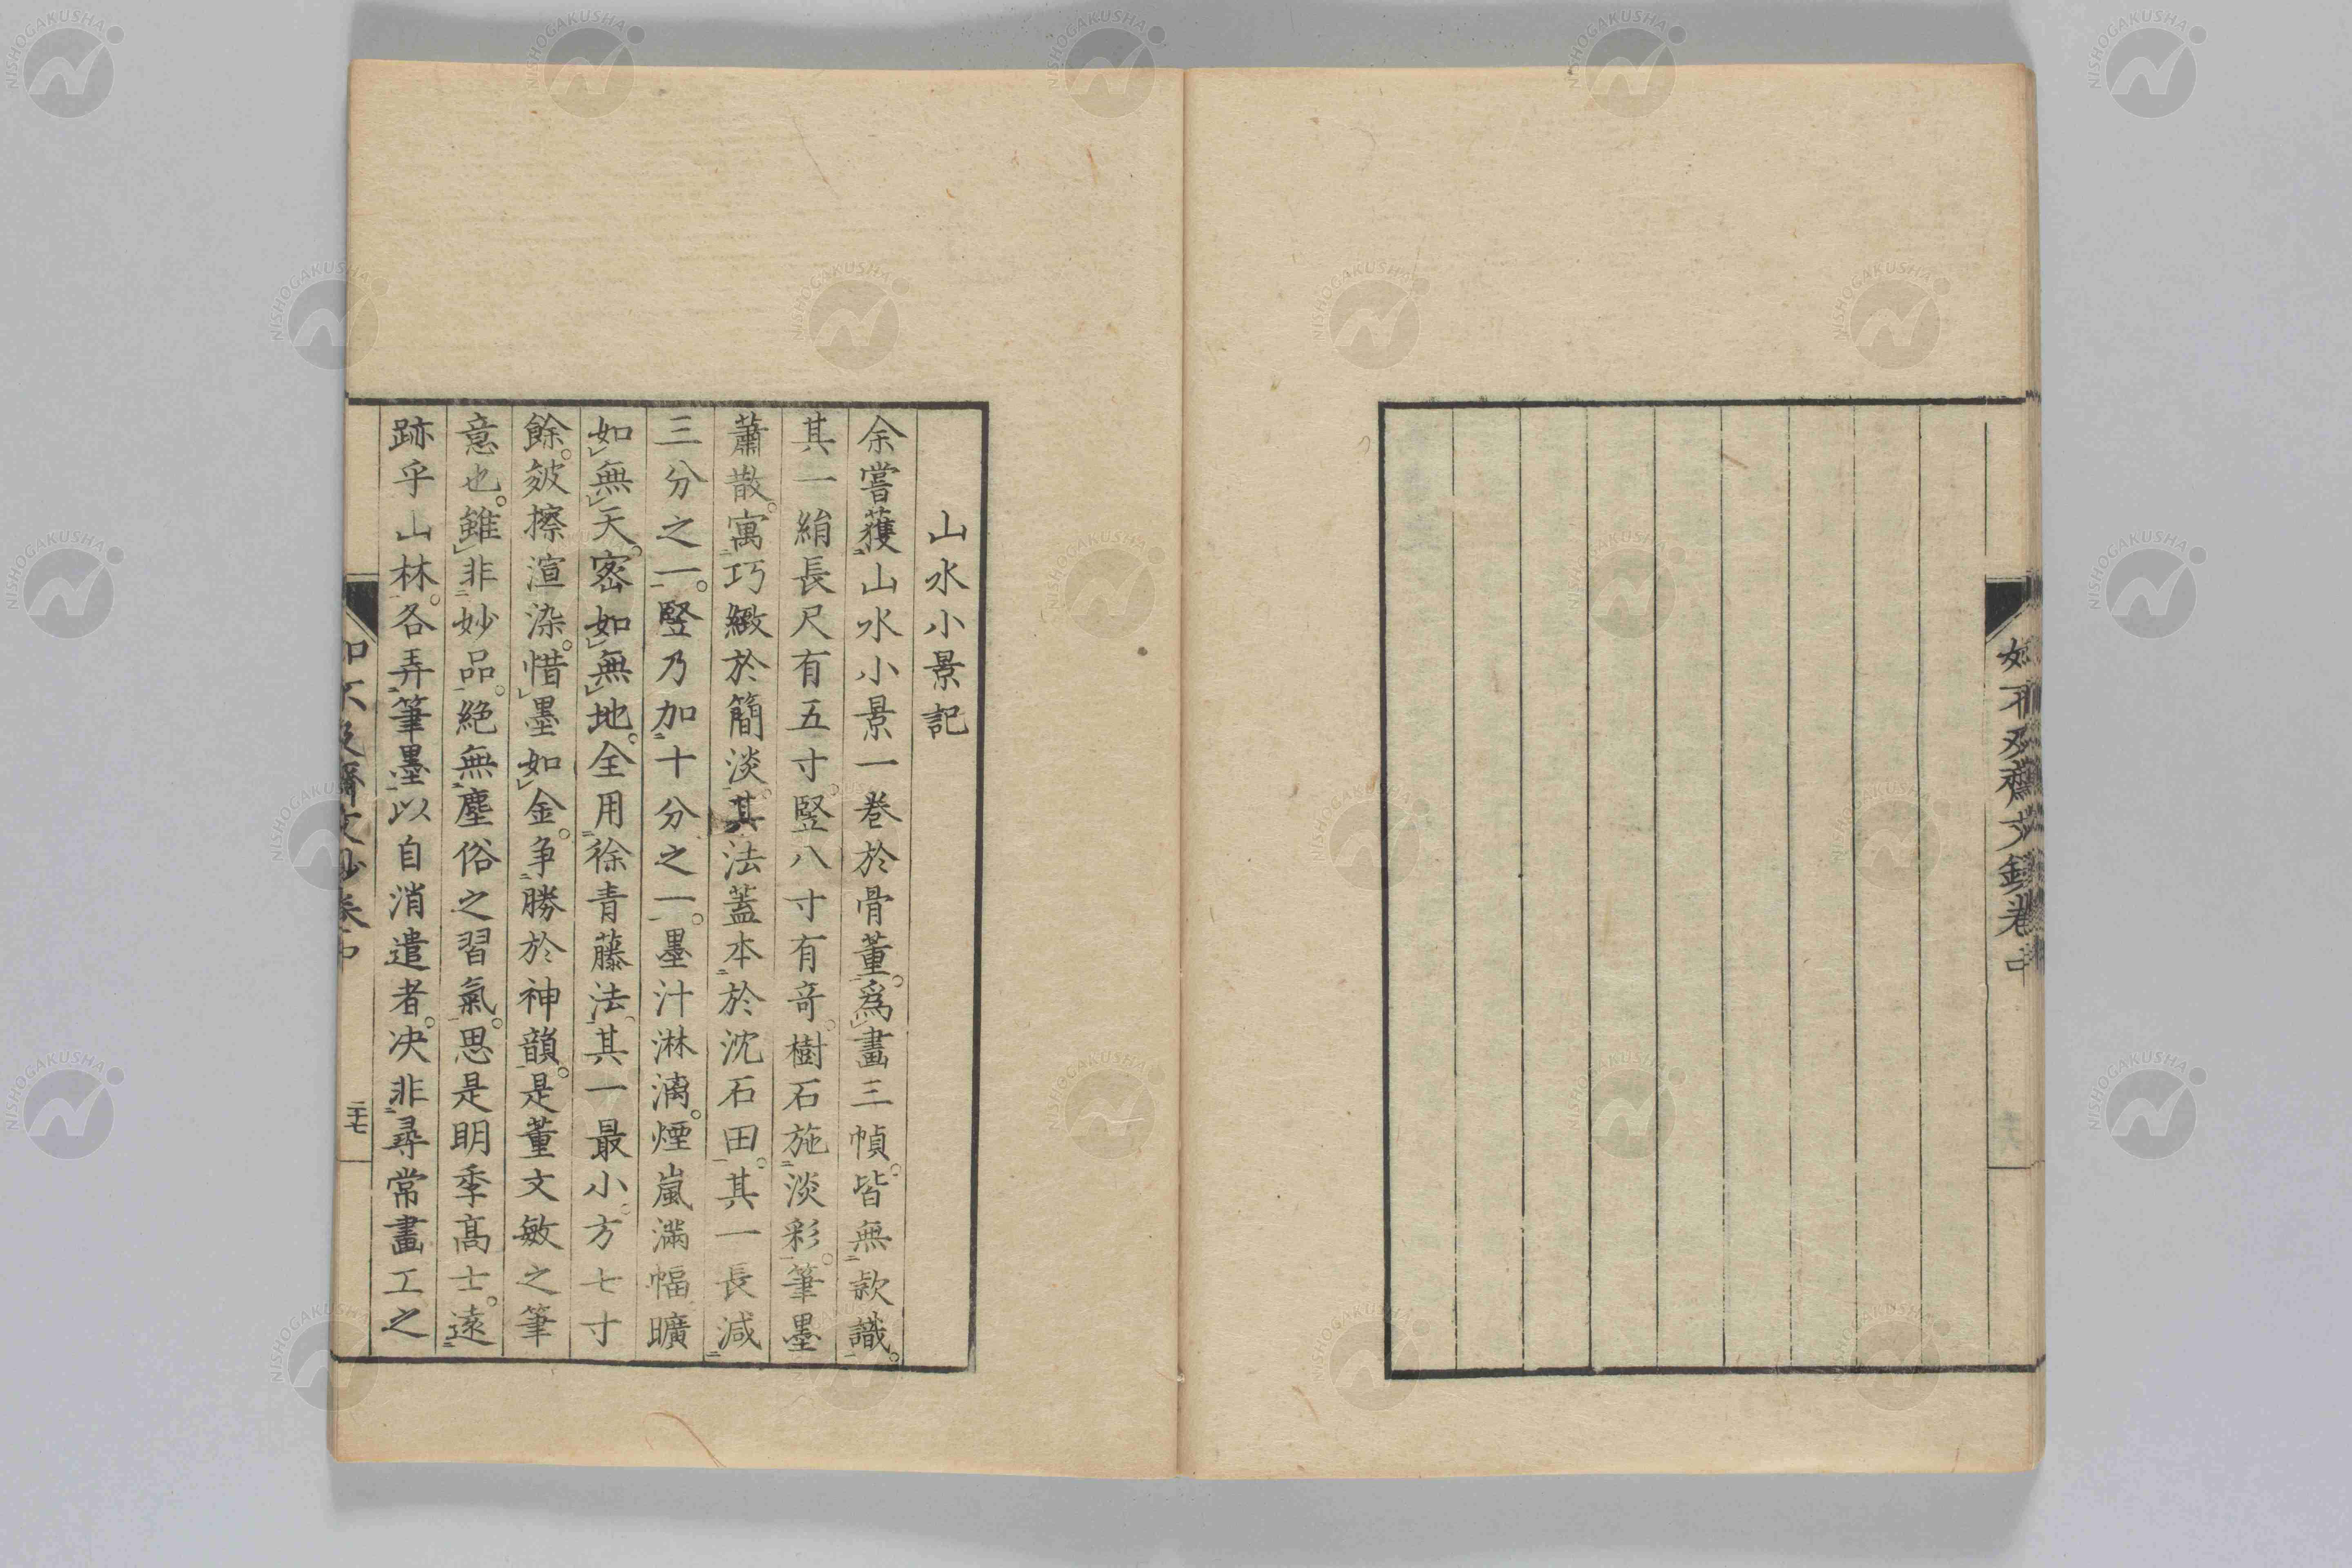 如不及齋文鈔卷中
山水小景記
余嘗獲山水小景一巻於骨董。爲畫三幀。皆無款識。
其一絹長尺有五寸。竪八寸有奇。樹石施淡彩。筆墨
蕭散。寓巧緻於簡淡。其法蓋本於沈石田。其一長減
三分之一。竪乃加十分之一。墨汁淋漓。煙嵐滿幅曠
如無天。密如無地。全用徐青藤法。其一最小。方七寸
餘。皴擦渲染。惜墨如金。爭勝於神韻。是董文敏之筆
意也。雖非妙品。絶無塵俗之習氣。思是明季髙士。遠
跡乎山林。各弄筆墨以自消遣者。决非尋常畫工之
如不及齋文鈔卷中
二十七
NISHOGAKUSHA